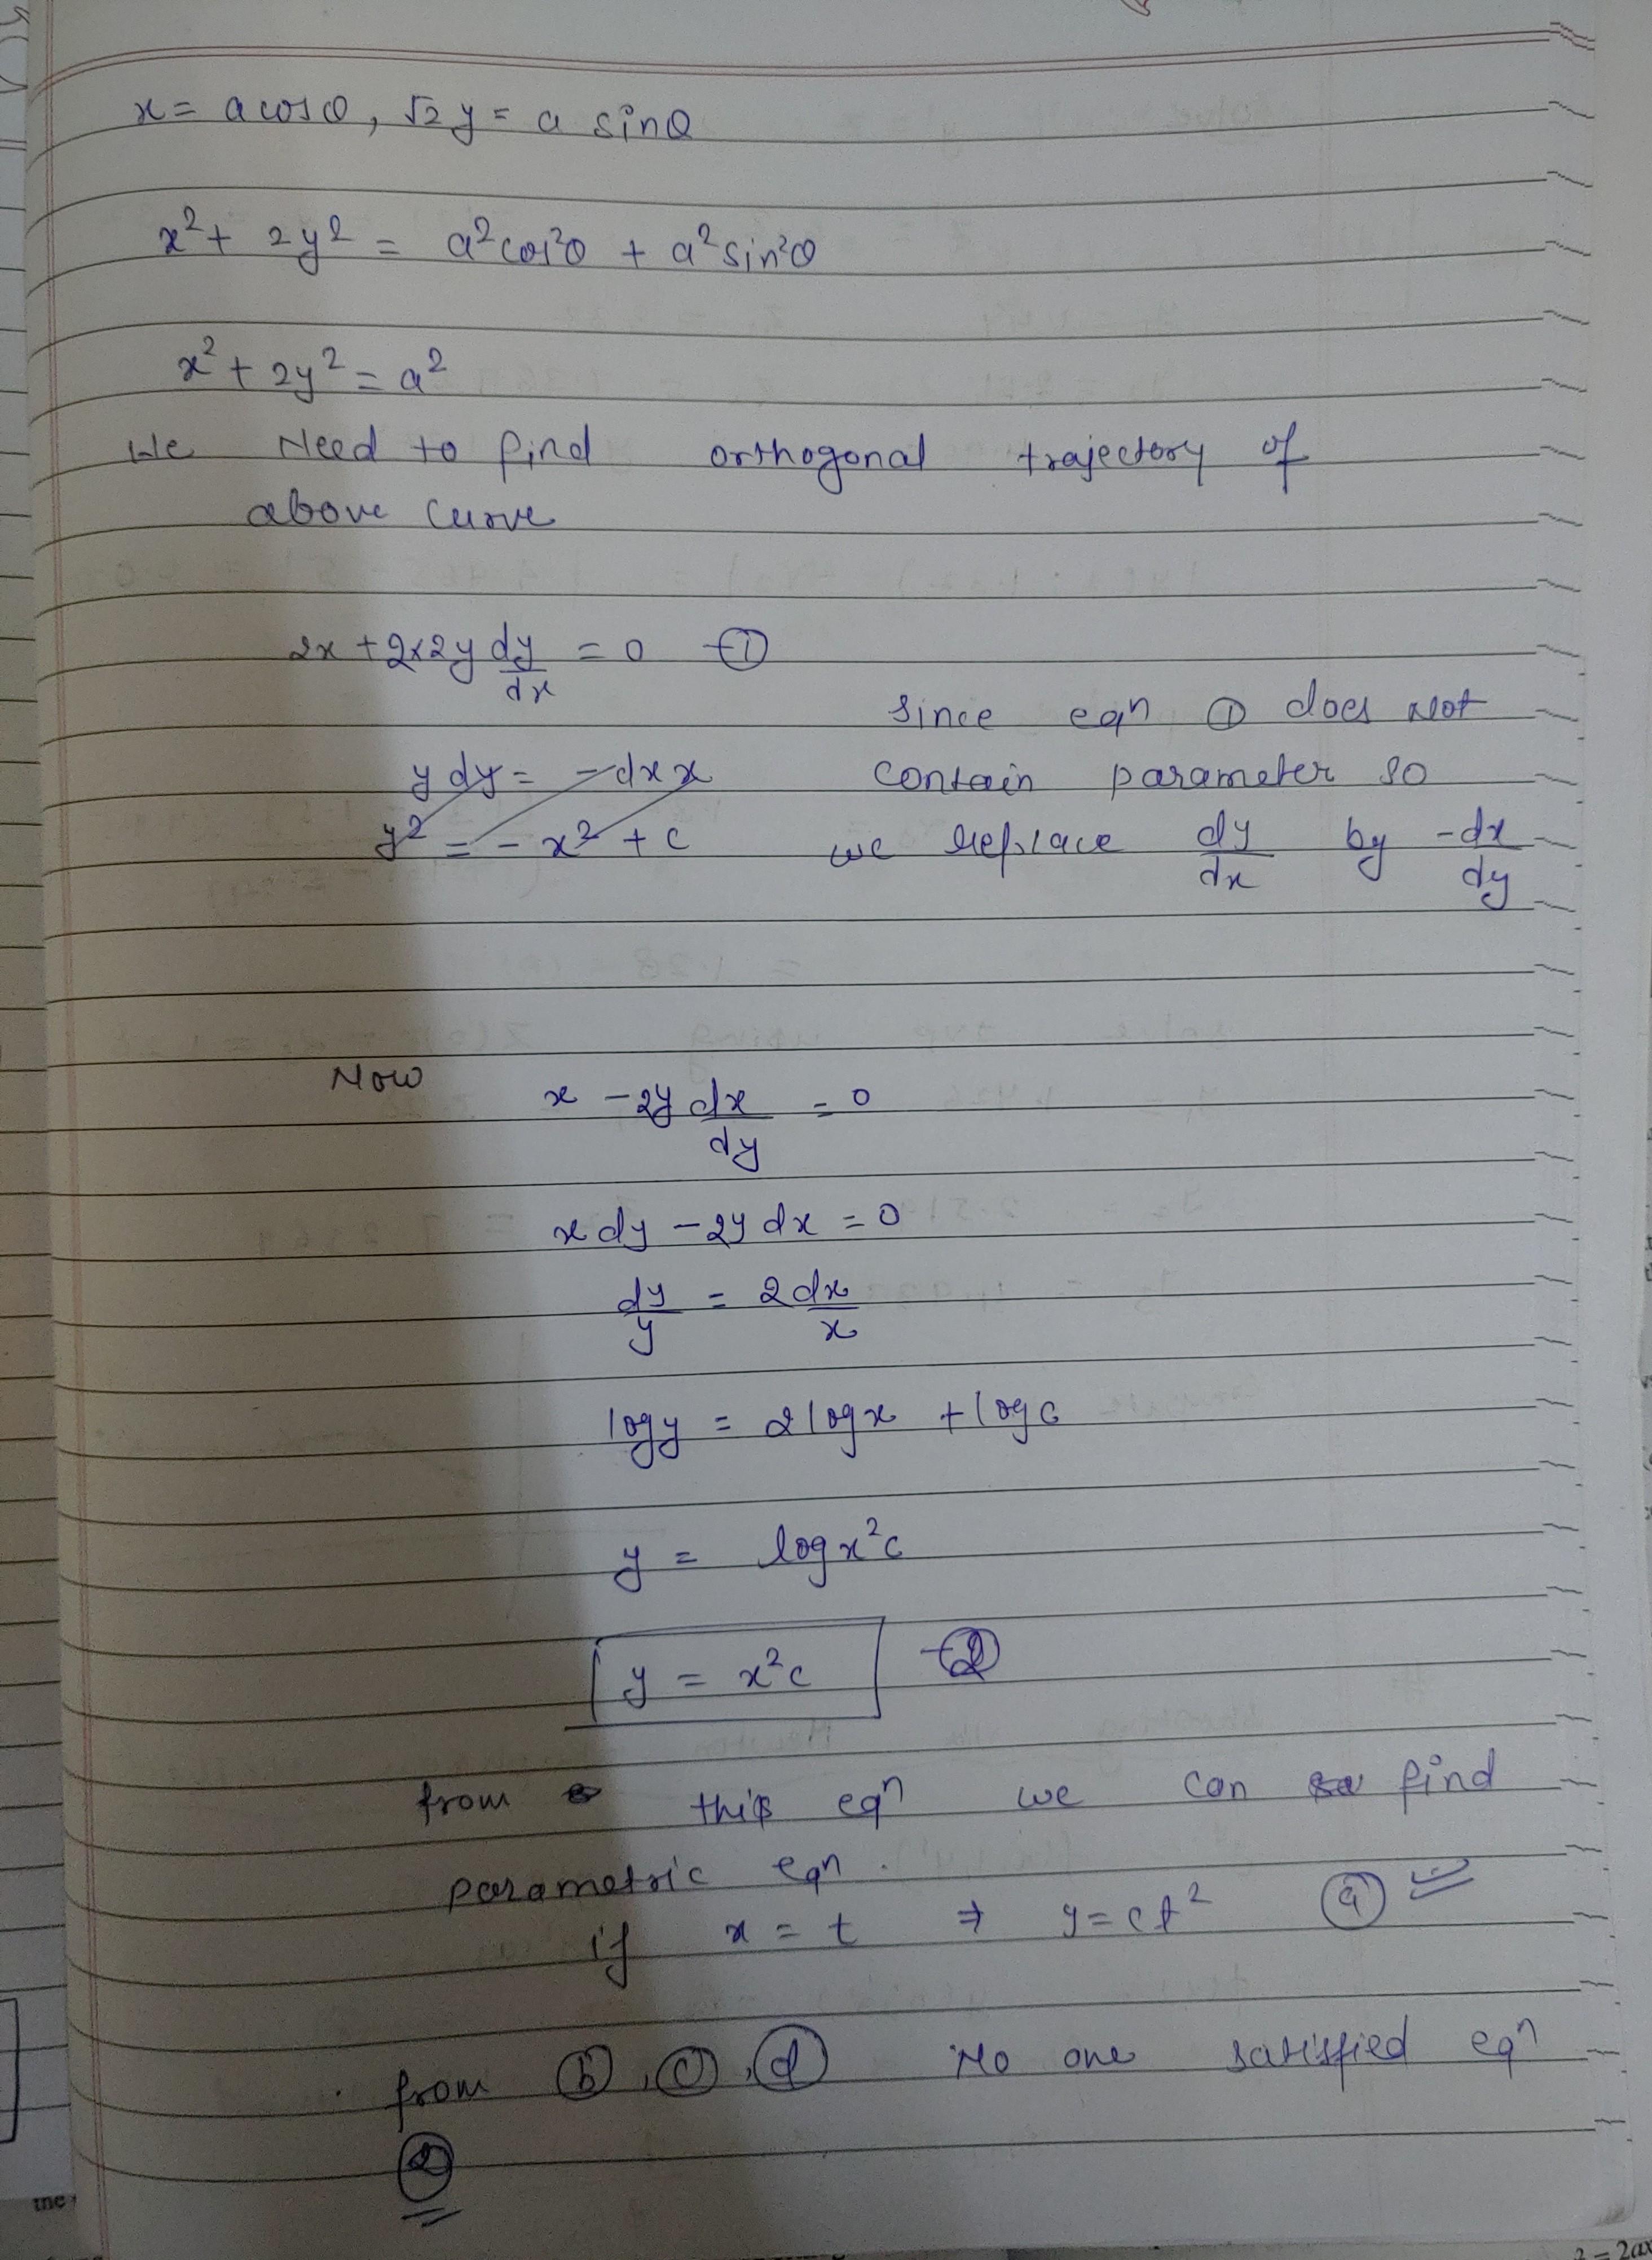 x = a cosθ, √2 y = a sinθ
x² + 2y² = a²cos²θ + a²sin²θ
x² + 2y² = a²
We Need to find orthogonal trajectory of
above curve
2x + 2×2y dy/dx = 0 -①
since eqn ① does not
y dy = -dx x contain parameter so
y² = - x² + c we replace dy/dx by -dx/dy
Now x - 2y dx/dy = 0
x dy - 2y dx = 0
dy/y = 2dx/x
log y = 2 log x + log c
y = log x²c
y = x²c -②
from this eqn we can find
parametric eqn.
if x = t ⇒ y = ct² ⓐ
from ⓑ, ⓒ, ⓓ No one satisfied eqn
②
the